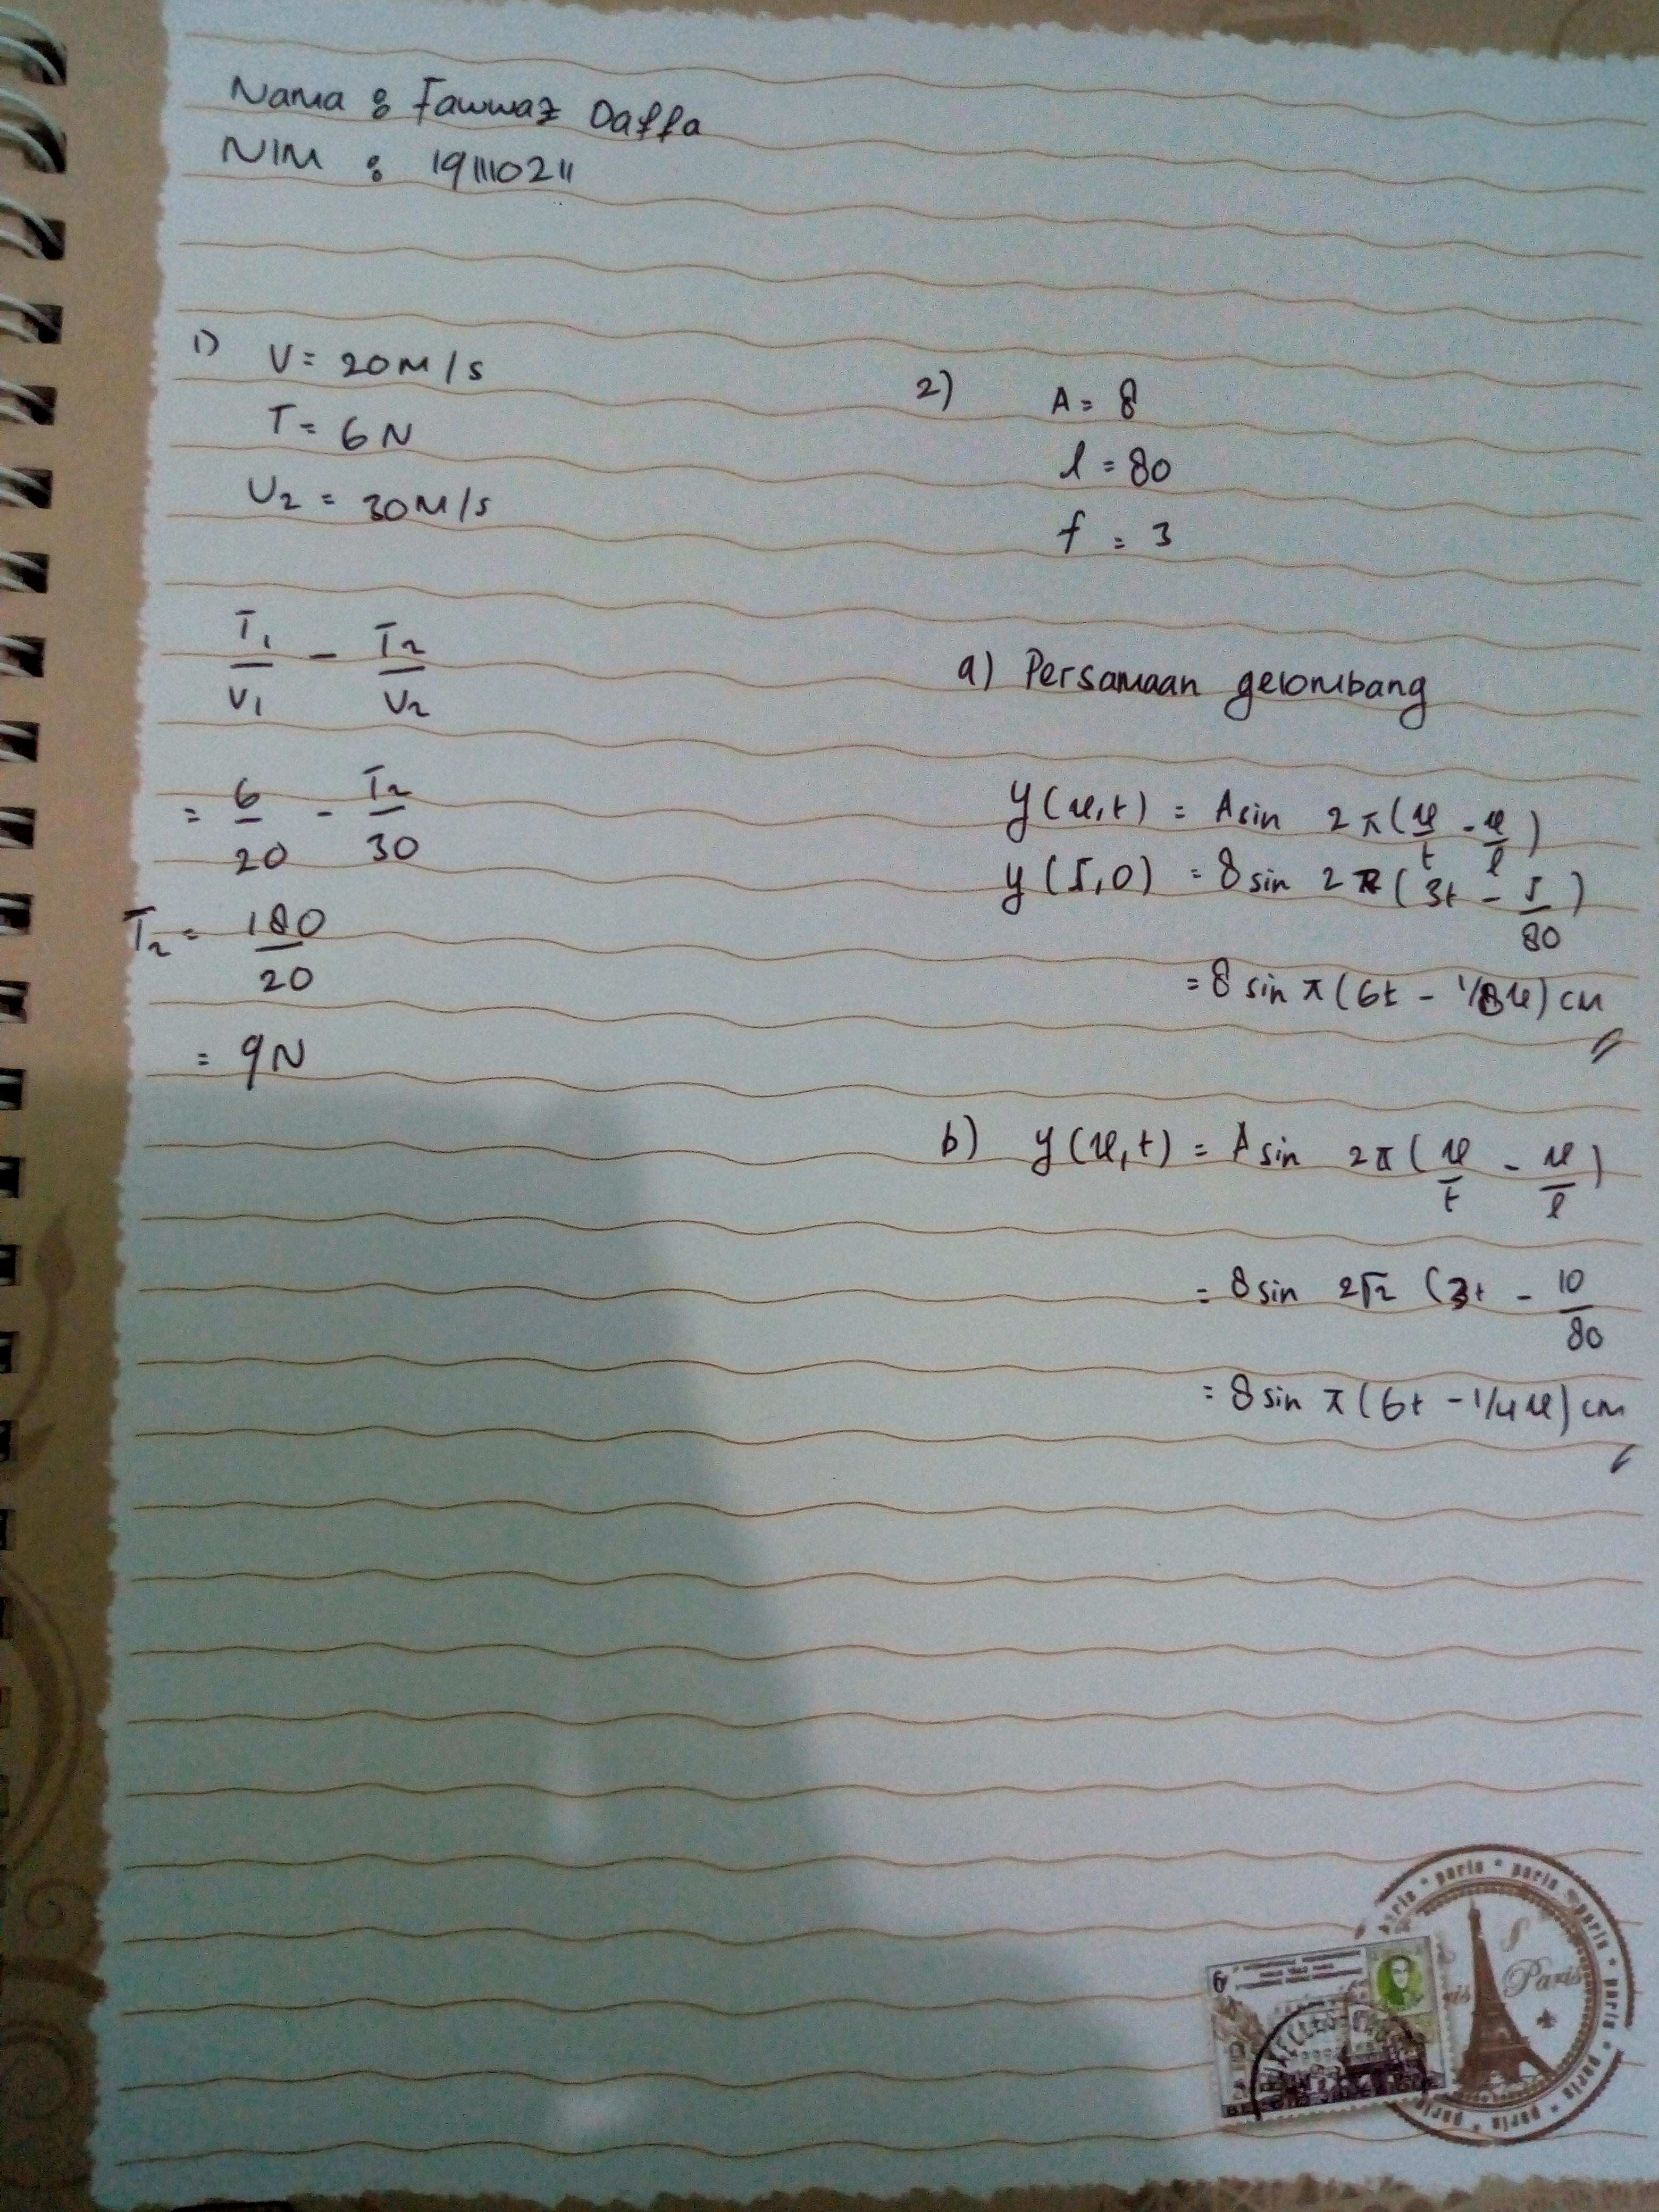 Nama : Fawwaz Daffa
NIM : 191110211
1) V = 20 M/s
T = 6 N
V2 = 30 M/s
T1/V1 - T2/V2
= 6/20 - T2/30
T2 = 180/20
= 9N
2) A = 8
l = 80
f = 3
a) Persamaan gelombang
y(x,t) = A sin 2π(x/t - x/l)
y(5,0) = 8 sin 2π(3t - 5/80)
= 8 sin π(6t - 1/8x) cm
b) y(x,t) = A sin 2π(x/t - x/l)
= 8 sin 2π (3t - 10/80
= 8 sin π(6t - 1/4x) cm
paris * paris * paris * paris * paris * paris
Paris
6F